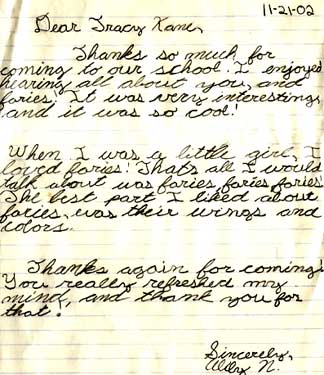 11-21-02
Dear Tracy Kane,
Thanks so much for
coming to our school. I enjoyed
hearing all about you, and
faries. It was very interesting,
and it was so cool!
When I was a little girl, I
loved faries! Thats all I would
talk about was faries, faries, faries!
The best part I liked about
faries, was their wings and
colors.
Thanks again for coming!
You really refreshed my
mind, and thank you for
that!
Sincerely,
Ally N.